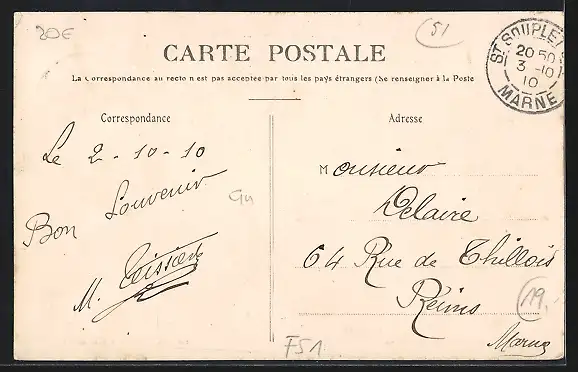 20€
51
CARTE POSTALE
La Correspondance au recto n est pas acceptée par tous les pays étrangers (Se renseigner à la Poste
ST SOUPLET
20 50
3 - 10
10
MARNE
Correspondance
Adresse
Le 2 - 10 - 10
Bon Souvenir
M.
Monsieur
Delaire
64 Rue de Thillois
Reims
Marne
19
F51